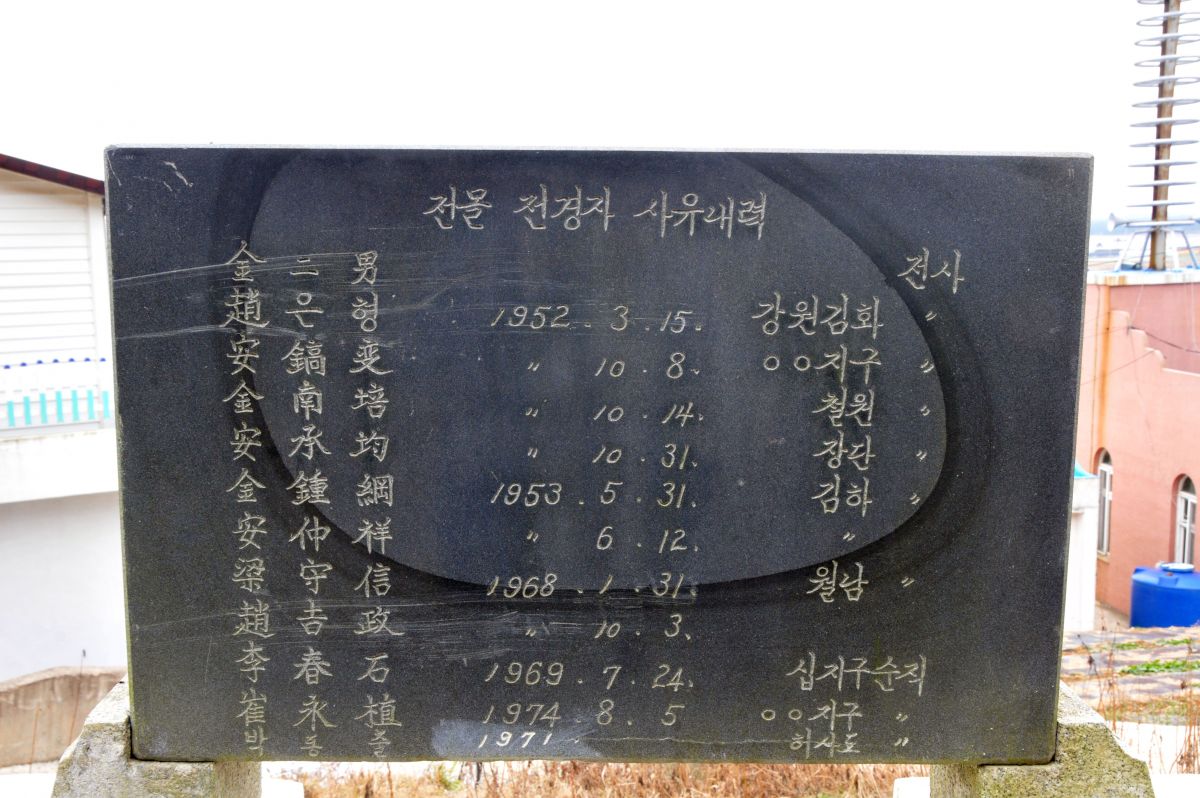 전몰 전경자 사유내력
金 二 男 전사
趙 은 형 1952 . 3 . 15. 강원김화 〃
安 鎬 奕 〃 10 . 8. ㅇㅇ지구 〃
金 南 培 〃 10 . 14. 철원 〃
安 承 均 〃 10 . 31. 장단 〃
金 鍾 綱 1953 . 5 . 31. 김하 〃
安 仲 祥 〃 6 . 12. 〃
梁 守 信 1968 . 1 . 31. 월남 〃
趙 吉 政 〃 10 . 3.
李 春 石 1969 . 7 . 24. 십지구순직
崔 永 植 1974 . 8 . 5 ㅇㅇ지구 〃
박 동 출 1971 . 허사도 〃